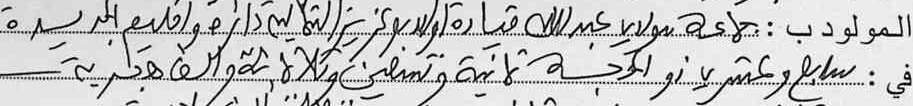 المولود ب: جماعة مولاي عبد الله قيادة أولاد بوعزيز الشمالية دائرة وإقليم الجديدة
في: سابع وعشرين ذو الحجة ثمانية وتسعين وثلاثمائة وألف هجرية